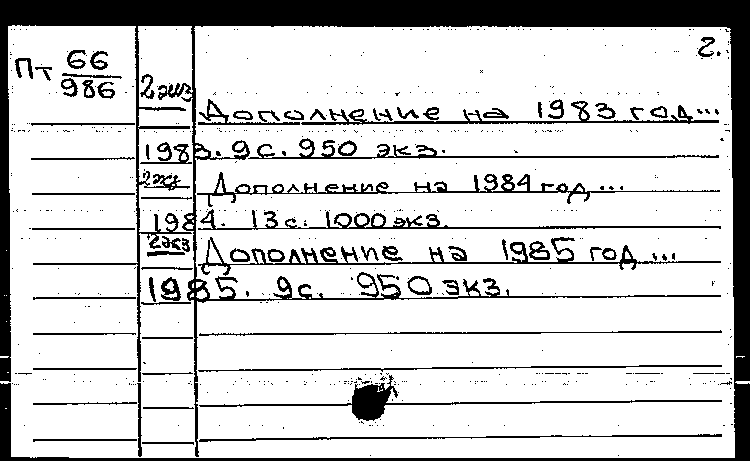 2.
Пт 66
986
2 экз
Дополнение на 1983 год...
1983. 9 с. 950 экз.
2 экз
Дополнение на 1984 год...
1984. 13 с. 1000 экз.
2 экз
Дополнение на 1985 год...
1985. 9 с. 950 экз.